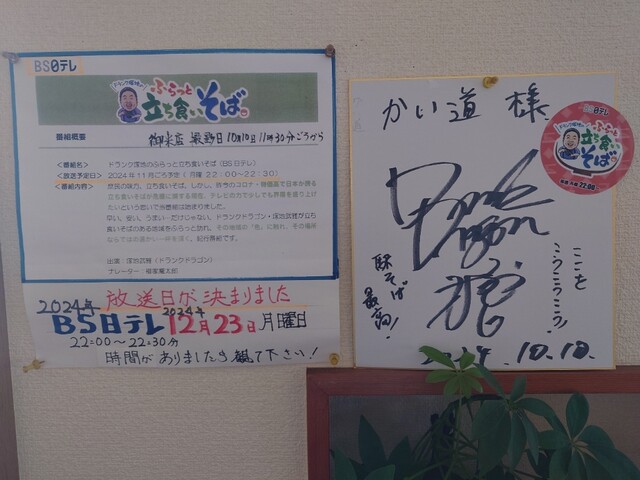 BS日テレ
ドランク塚地の
ふらっと
立ち食いそば
番組概要
御来店 撮影日10月10日11時30分ごろから
<番組名> ドランク塚地のふらっと立ち食いそば(BS日テレ)
<放送予定日> 2024年11月ごろ予定(月曜 22:00~22:30)
<番組内容> 庶民の味方、立ち食いそば。しかし、昨今のコロナ・物価高で日本が誇る
立ち食いそばが危機に瀕する現在、テレビの力で少しでも界隈を盛り上げ
たいという思いで当番組は始まりました。
早い、安い、うまい…だけじゃない。ドランクドラゴン・塚地武雅が立ち
食いそばのある地域をふらっと訪れ、その地域の「色」に触れ、その場所
ならではの温かい一杯を頂く、紀行番組です。
出演:塚地武雅(ドランクドラゴン)
ナレーター:根本竜太郎
2024年 放送日が決まりました
2024年
BS日テレ 12月23日 月曜日
22:00~22:30分
時間がありましたら観て下さい!
かい道 様
BS日テレ
ドランク塚地の
ふらっと
立ち食い
そば
毎週月曜 22:00
Drunk
Dragon
ここを
駅そば
最高!
2024.10.10.